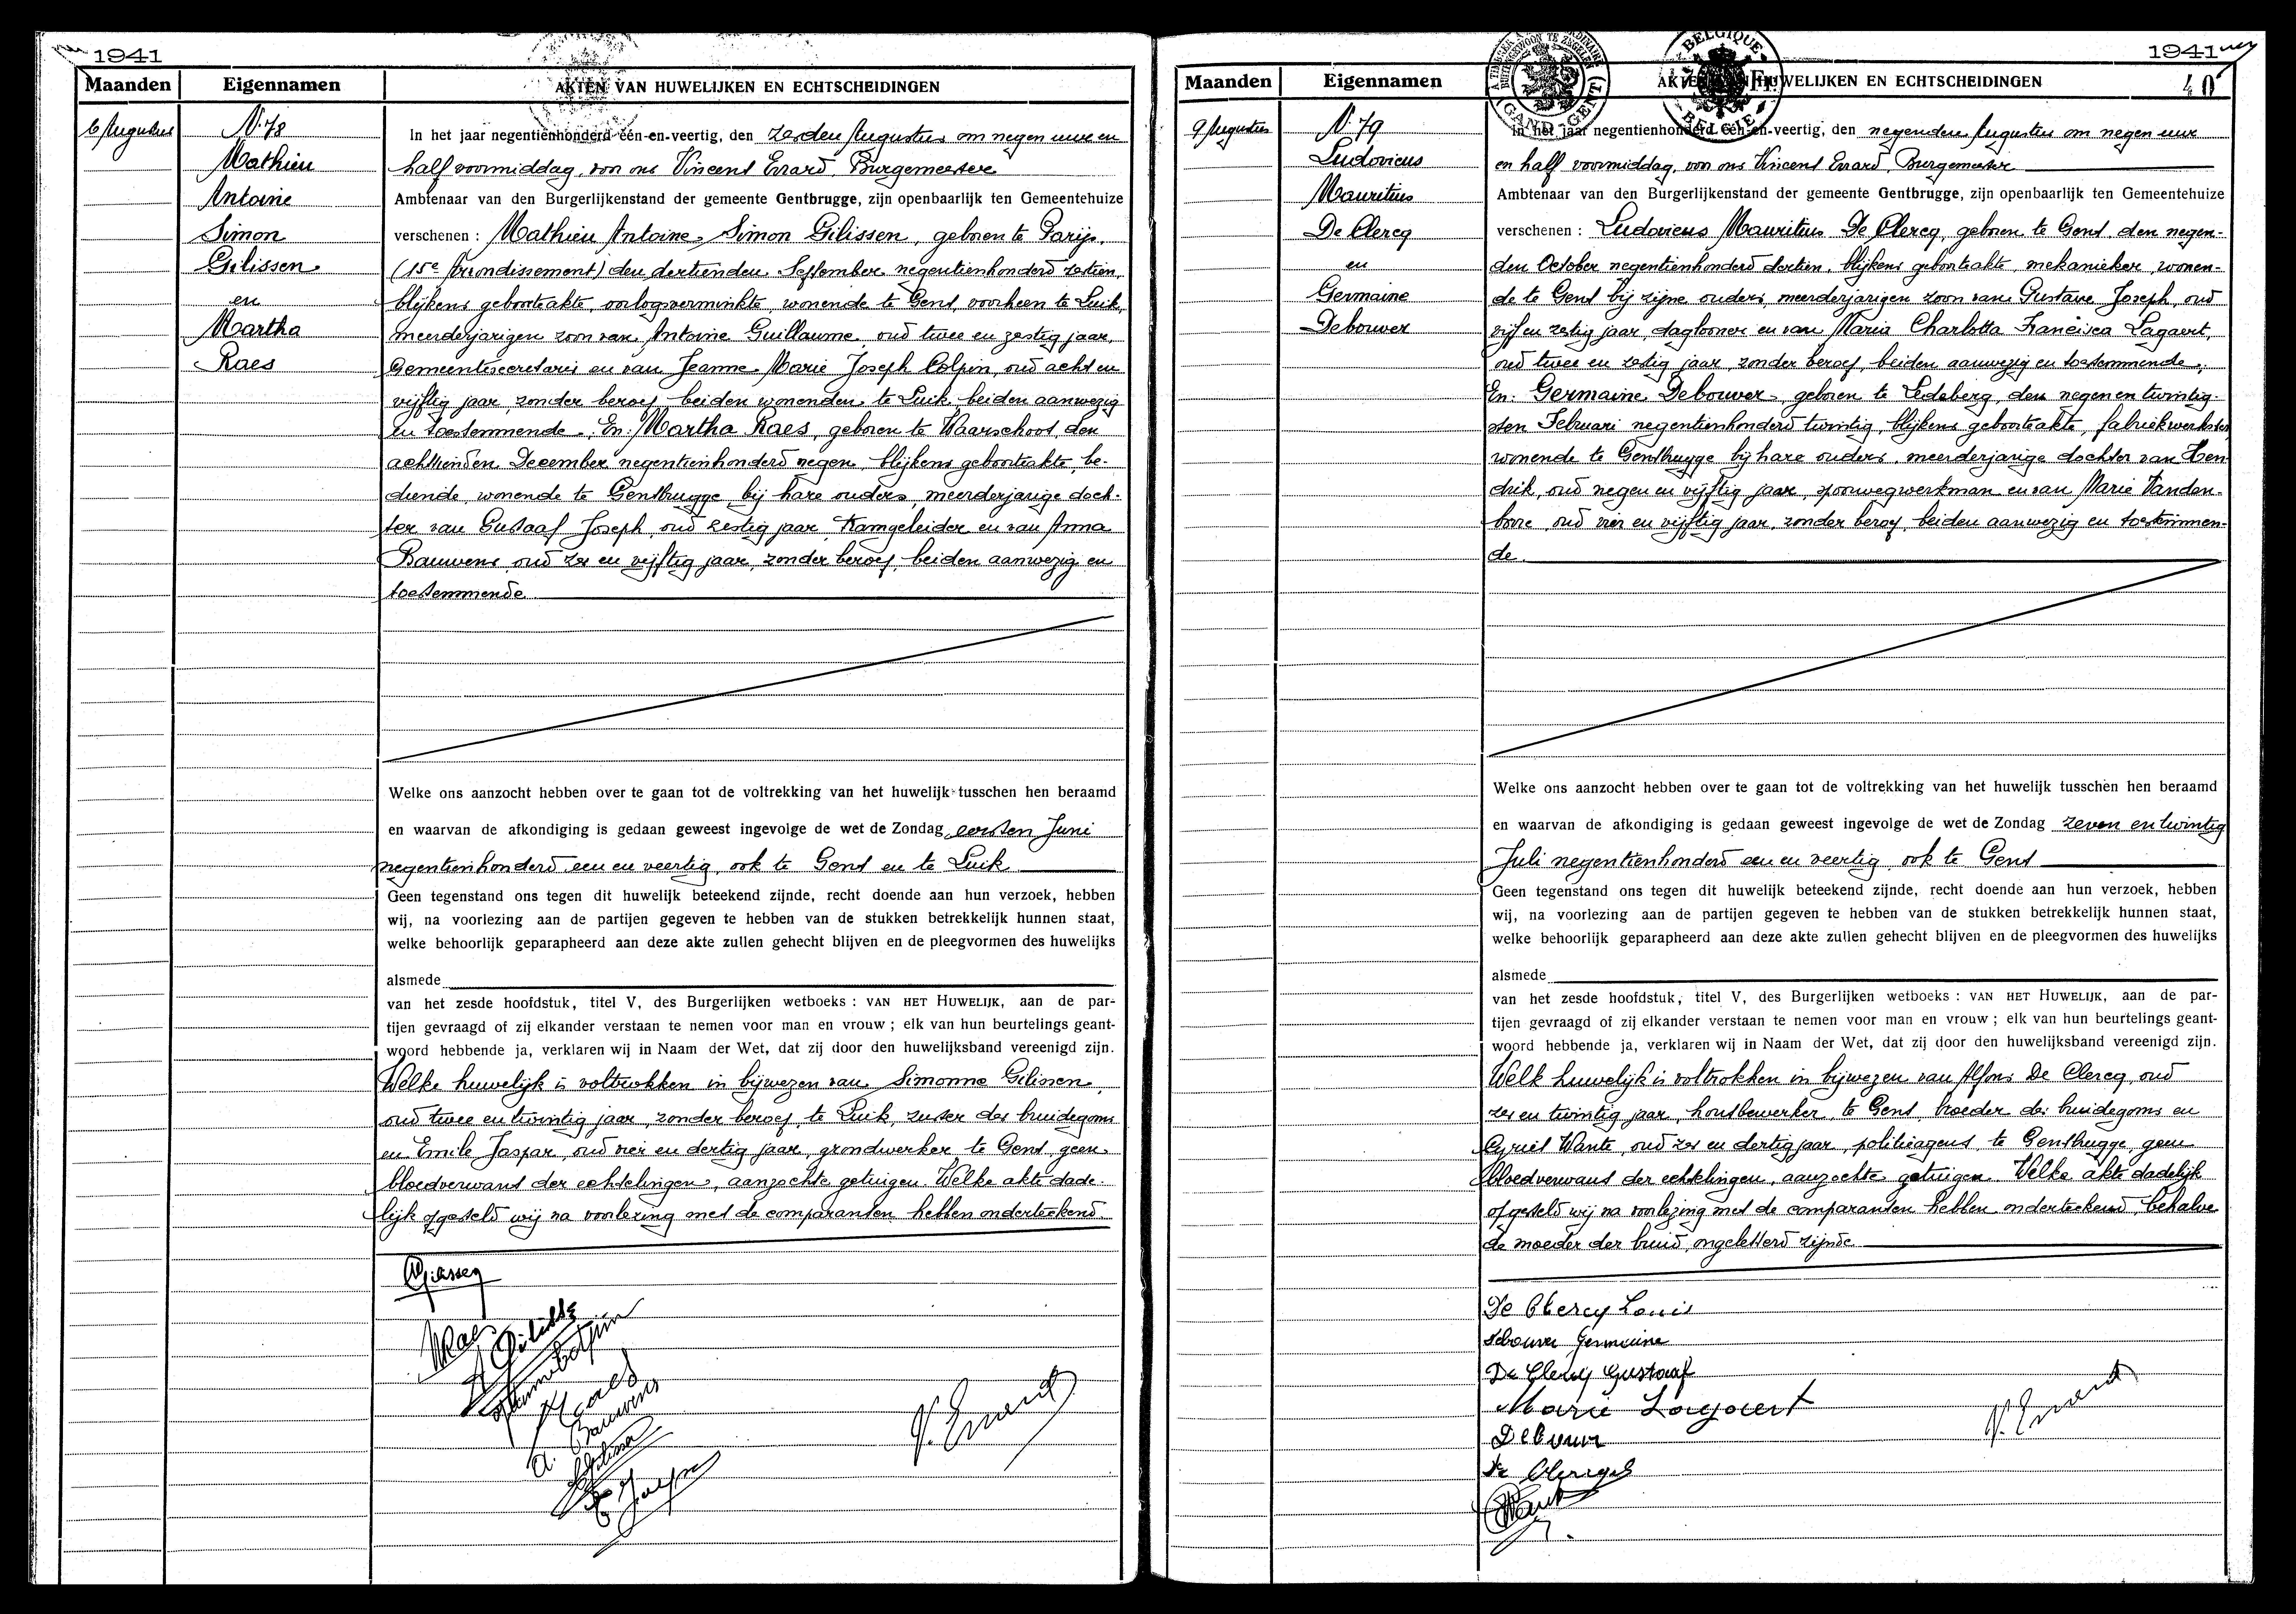 1941
Maanden
Eigennamen
AKTEN VAN HUWELIJKEN EN ECHTSCHEIDINGEN
6 Augustus
N. 78
Mathieu
Antoine
Simon
Gilissen
en
Martha
Raes
In het jaar negentienhonderd één-en-veertig, den zesden Augustus om negen uur en
half voormiddag, voor ons Vincent Errard, Burgemeester
Ambtenaar van den Burgerlijkenstand der gemeente Gentbrugge, zijn openbaarlijk ten Gemeentehuize
verschenen : Mathieu Antoine Simon Gilissen, geboren te Parijs,
(15e Arrondissement) den dertienden September negentienhonderd zestien,
blijkens geboorteakte, oorlogsverminkte, wonende te Gent, voorheen te Luik,
meerderjarigen zoon van Antoine Guillaume, oud twee en zestig jaar,
Gemeentesecretaris en van Jeanne Marie Joseph Colpin, oud acht en
vijftig jaar, zonder beroep, beiden wonenden te Luik, beiden aanwezig
en toestemmende. En: Martha Raes, geboren te Waarschoot, den
achttienden December negentienhonderd negen, blijkens geboorteakte, be-
diende, wonende te Gentbrugge bij hare ouders, meerderjarige doch-
ter van Gustaaf Joseph, oud zestig jaar, Tramgeleider en van Anna
Bauwens oud zes en vijftig jaar, zonder beroep, beiden aanwezig en
toestemmende
Welke ons aanzocht hebben over te gaan tot de voltrekking van het huwelijk tusschen hen beraamd
en waarvan de afkondiging is gedaan geweest ingevolge de wet de Zondag eersten Juni
negentienhonderd een en veertig, ook te Gent en te Luik
Geen tegenstand ons tegen dit huwelijk beteekend zijnde, recht doende aan hun verzoek, hebben
wij, na voorlezing aan de partijen gegeven te hebben van de stukken betrekkelijk hunnen staat,
welke behoorlijk geparapheerd aan deze akte zullen gehecht blijven en de pleegvormen des huwelijks
alsmede
van het zesde hoofdstuk, titel V, des Burgerlijken wetboeks : VAN HET HUWELIJK, aan de par-
tijen gevraagd of zij elkander verstaan te nemen voor man en vrouw ; elk van hun beurtelings geant-
woord hebbende ja, verklaren wij in Naam der Wet, dat zij door den huwelijksband vereenigd zijn.
Welke huwelijk is voltrokken in bijwezen van Simonne Gilissen,
oud twee en twintig jaar, zonder beroep, te Luik, zuster des bruidegoms
en Emile Jaspar, oud vier en dertig jaar, grondwerker te Gent, geen
bloedverwant der echtelingen, aanzochte getuigen. Welke akte dade-
lijk opgesteld wij na voorlezing met de comparanten hebben onderteekend
Raes
A. Bauwens
V. Errard
1941
40
Maanden
Eigennamen
AKTEN VAN HUWELIJKEN EN ECHTSCHEIDINGEN
GAND - GENT
BELGIQUE
BELGIE
9 Augustus
N. 79
Ludovicus
Mauritius
De Clercq
en
Germaine
Debouver
In het jaar negentienhonderd één-en-veertig, den negenden Augustus om negen uur
en half voormiddag, voor ons Vincent Errard, Burgemeester
Ambtenaar van den Burgerlijkenstand der gemeente Gentbrugge, zijn openbaarlijk ten Gemeentehuize
verschenen : Ludovicus Mauritius De Clercq, geboren te Gent, den negen-
den October negentienhonderd dertien, blijkens geboorteakte, mekanieker, wonen-
de te Gent bij zijne ouders, meerderjarigen zoon van Gustave Joseph, oud
vijf en zestig jaar, daglooner en van Maria Charlotta Francisca Lagaert,
oud twee en zestig jaar, zonder beroep, beiden aanwezig en toestemmende;
En: Germaine Debouver, geboren te Ledeberg, den negen en twintig-
sten Februari negentienhonderd twintig, blijkens geboorteakte, fabriekwerkster,
wonende te Gentbrugge bij hare ouders, meerderjarige dochter van Hen-
drik, oud negen en vijftig jaar, spoorwegwerkman en van Marie Vanden-
bore, oud vier en vijftig jaar, zonder beroep, beiden aanwezig en toestemmen-
de
Welke ons aanzocht hebben over te gaan tot de voltrekking van het huwelijk tusschen hen beraamd
en waarvan de afkondiging is gedaan geweest ingevolge de wet de Zondag zeven en twintig
Juli negentienhonderd een en veertig, ook te Gent
Geen tegenstand ons tegen dit huwelijk beteekend zijnde, recht doende aan hun verzoek, hebben
wij, na voorlezing aan de partijen gegeven te hebben van de stukken betrekkelijk hunnen staat,
welke behoorlijk geparapheerd aan deze akte zullen gehecht blijven en de pleegvormen des huwelijks
alsmede
van het zesde hoofdstuk, titel V, des Burgerlijken wetboeks : VAN HET HUWELIJK, aan de par-
tijen gevraagd of zij elkander verstaan te nemen voor man en vrouw ; elk van hun beurtelings geant-
woord hebbende ja, verklaren wij in Naam der Wet, dat zij door den huwelijksband vereenigd zijn.
Welk huwelijk is voltrokken in bijwezen van Alfons De Clercq, oud
zes en twintig jaar, houtbewerker, te Gent broeder des bruidegoms en
Cyriel Wante, oud zes en dertig jaar, politieagent, te Gentbrugge, geen
bloedverwant der echtelingen, aanzochte getuigen. Welke akte dadelijk
opgesteld wij na voorlezing met de comparanten hebben onderteekend, behalve
de moeder der bruid, ongeletterd zijnde
De Clercq Louis
Debouver Germaine
De Clercq Gustaaf
Marie Lagaert
Debouver
V. Errard